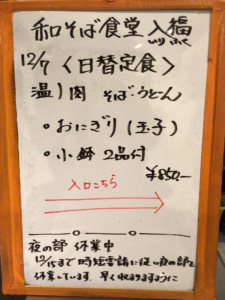 和そば食堂 入福
12/7 〈日替定食〉
温）肉 そば・うどん
・おにぎり（玉子）
・小鉢 2品付
¥850-
入口こちら
夜の部 休業中
12/15まで 時短要請に従い夜の部を
休業しています。早く収まりますように